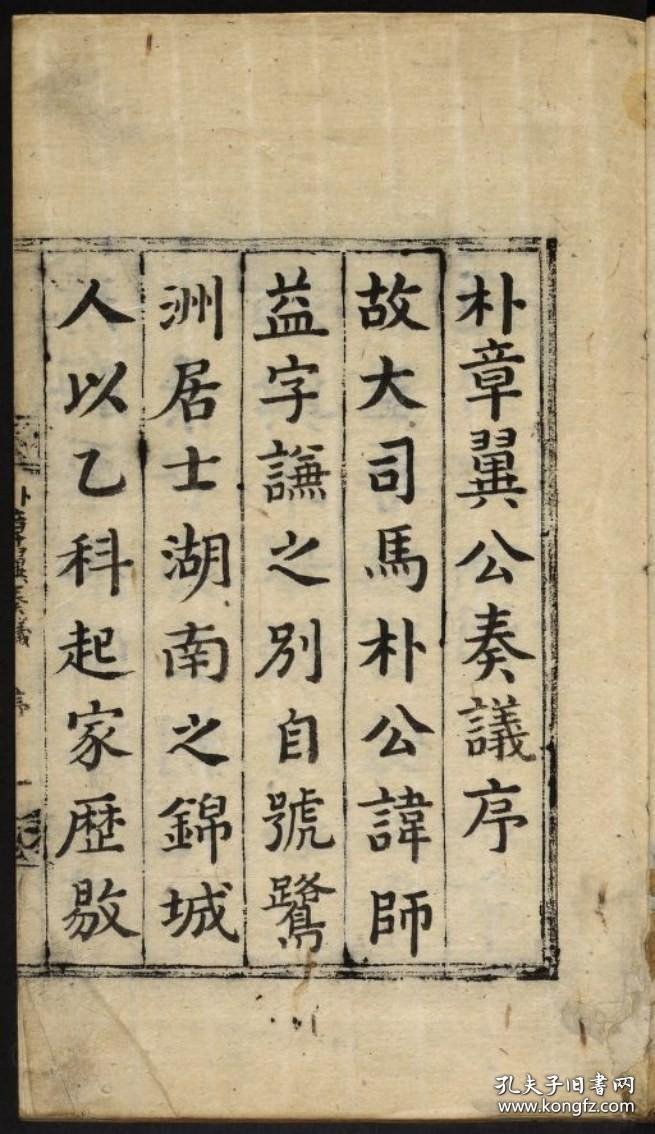 朴章翼公奏議序
故大司馬朴公諱師
益字謙之別自號鷺
洲居士湖南之錦城
人以乙科起家歷敭
序
一
孔夫子旧书网
www.kongfz.com